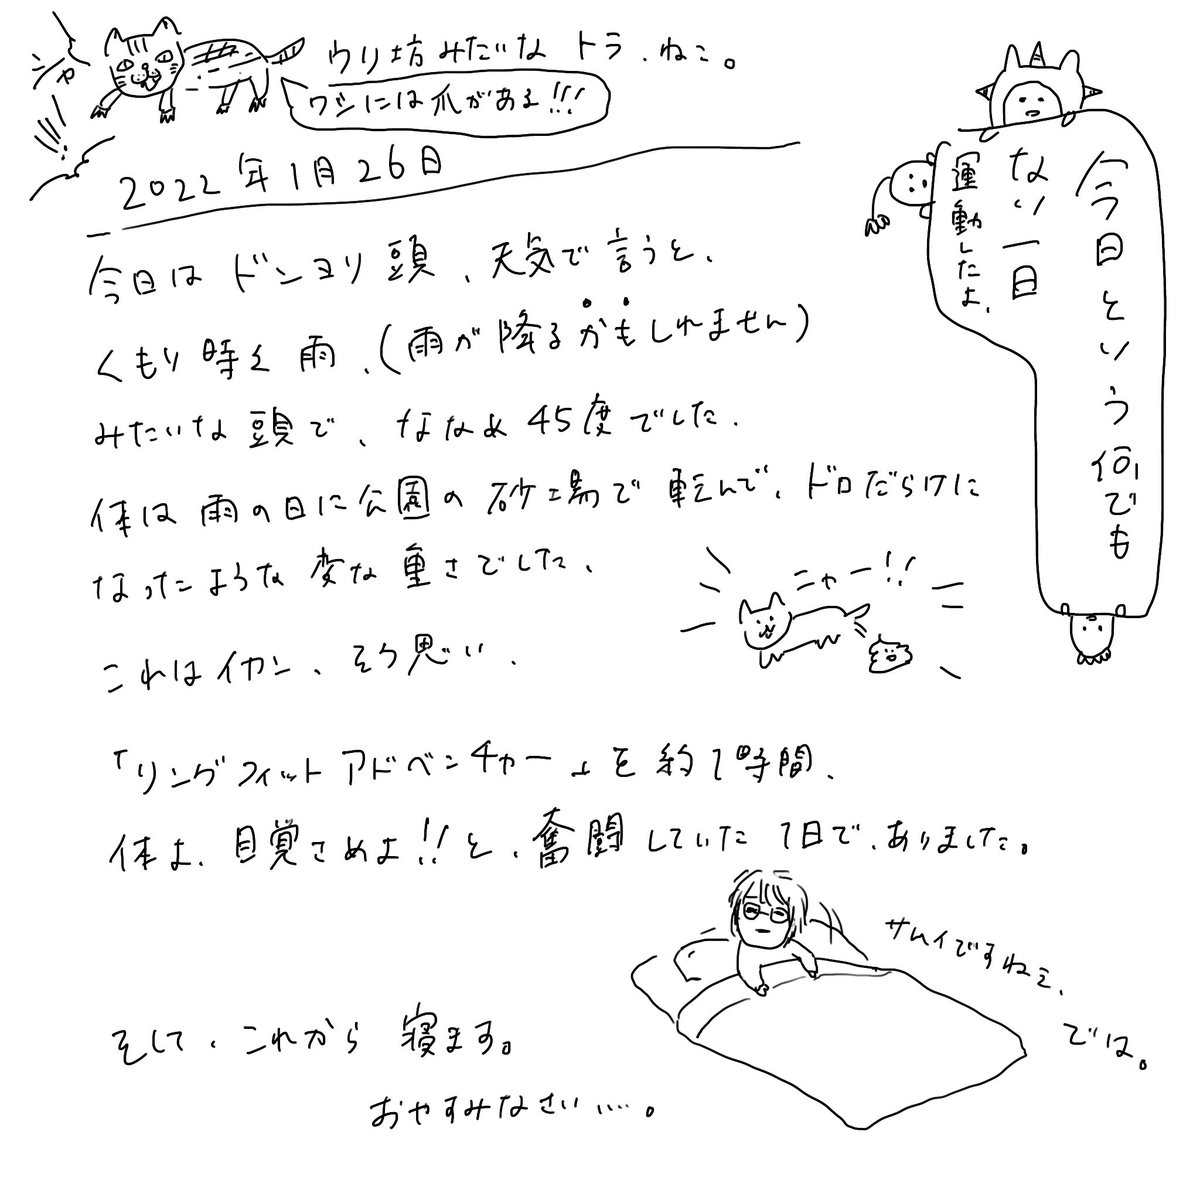 シャ
ウリ坊みたいな トラ、ねこ。
ワシには爪がある!!!
2022年1月26日
今日という何でも
ない一日
運動したよ、
今日は ドンヨリ頭、天気で言うと、
くもり時々雨、(雨が降るかもしれません)
みたいな頭で、ななめ45度でした。
体は雨の日に公園の砂場で転んで、ドロだらけに
なったような変な重さでした、
ニャー!!
これはイカン、そう思い、
「リングフィットアドベンチャー」を約1時間、
体よ、目覚さめよ!!と、奮闘していた1日で、ありました。
サムイですねぇ、
では。
そして、これから 寝ます。
おやすみなさい…。